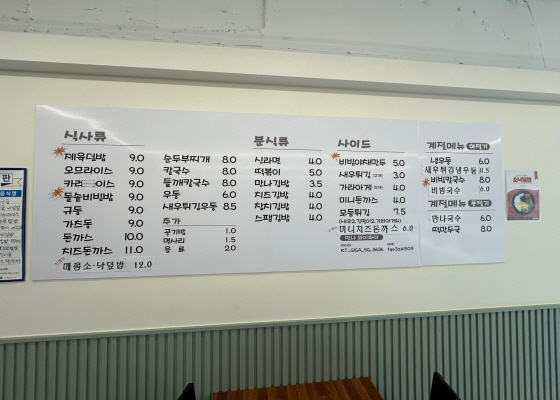 식사류
제육덮밥 9.0
오므라이스 9.0
카레라이스 9.0
돌솥비빔밥 9.0
규동 9.0
가츠동 9.0
돈까스 10.0
치즈돈까스 11.0
매콤소·낙덮밥 12.0
순두부찌개 8.0
칼국수 8.0
들깨칼국수 8.0
우동 6.0
새우튀김우동 8.5
추가
공기밥 1.0
메사리 1.5
음료 2.0
분식류
신라면 4.0
떡볶이 5.0
만나김밥 3.5
치즈김밥 4.0
참치김밥 4.0
스팸김밥 4.0
사이드
비빔야채만두 5.0
새우튀김 3.0
가라아게 4.0
미니돈까스 4.0
모둠튀김 7.5
미니치즈돈까스 6.0
만나 와이파이
KT_GIGA_5G_3636
계절메뉴
냉우동 6.0
새우튀김냉우동 8.5
비빔칼국수 8.0
비빔국수 6.0
계절메뉴
만나국수 6.0
떡만두국 8.0